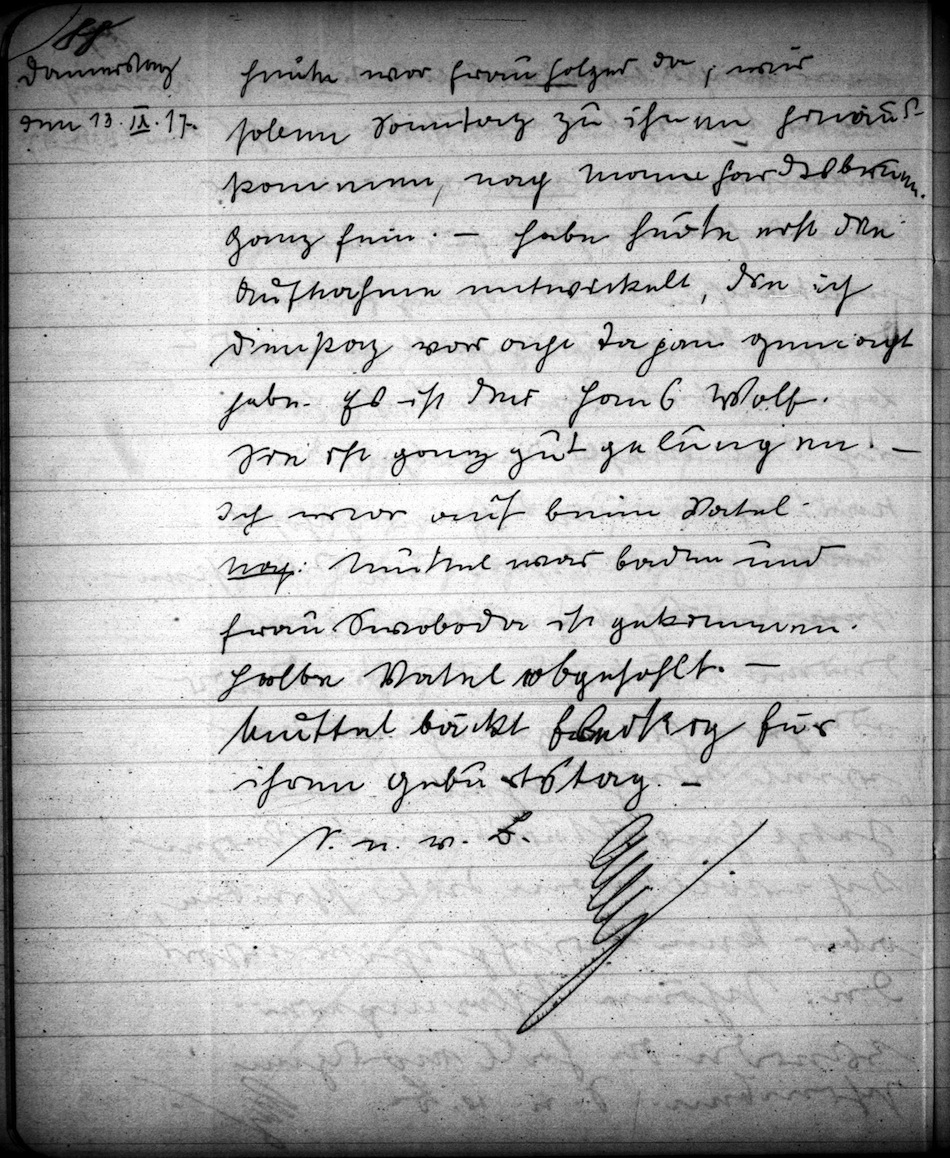 188
Donnerstag
den 13. IX. 17.
heute war Frau Holzer da, wir
sollen Sonntag zu ihnen hinaus-
kommen, nach Mannhardtsbrunn.
Ganz fein. — habe heute erst die
Aufnahme entwickelt, die ich
Dienstag vor acht Tagen gemacht
habe. Es ist der Hans Wolf.
Sie ist ganz gut gelungen. —
Ich war auch beim Vatel.
Nach: Muttel war baden und
Frau Swoboda ist gekommen.
Vatel abgeholt. —
Muttel bäckt für
ihren Geburtstag. —